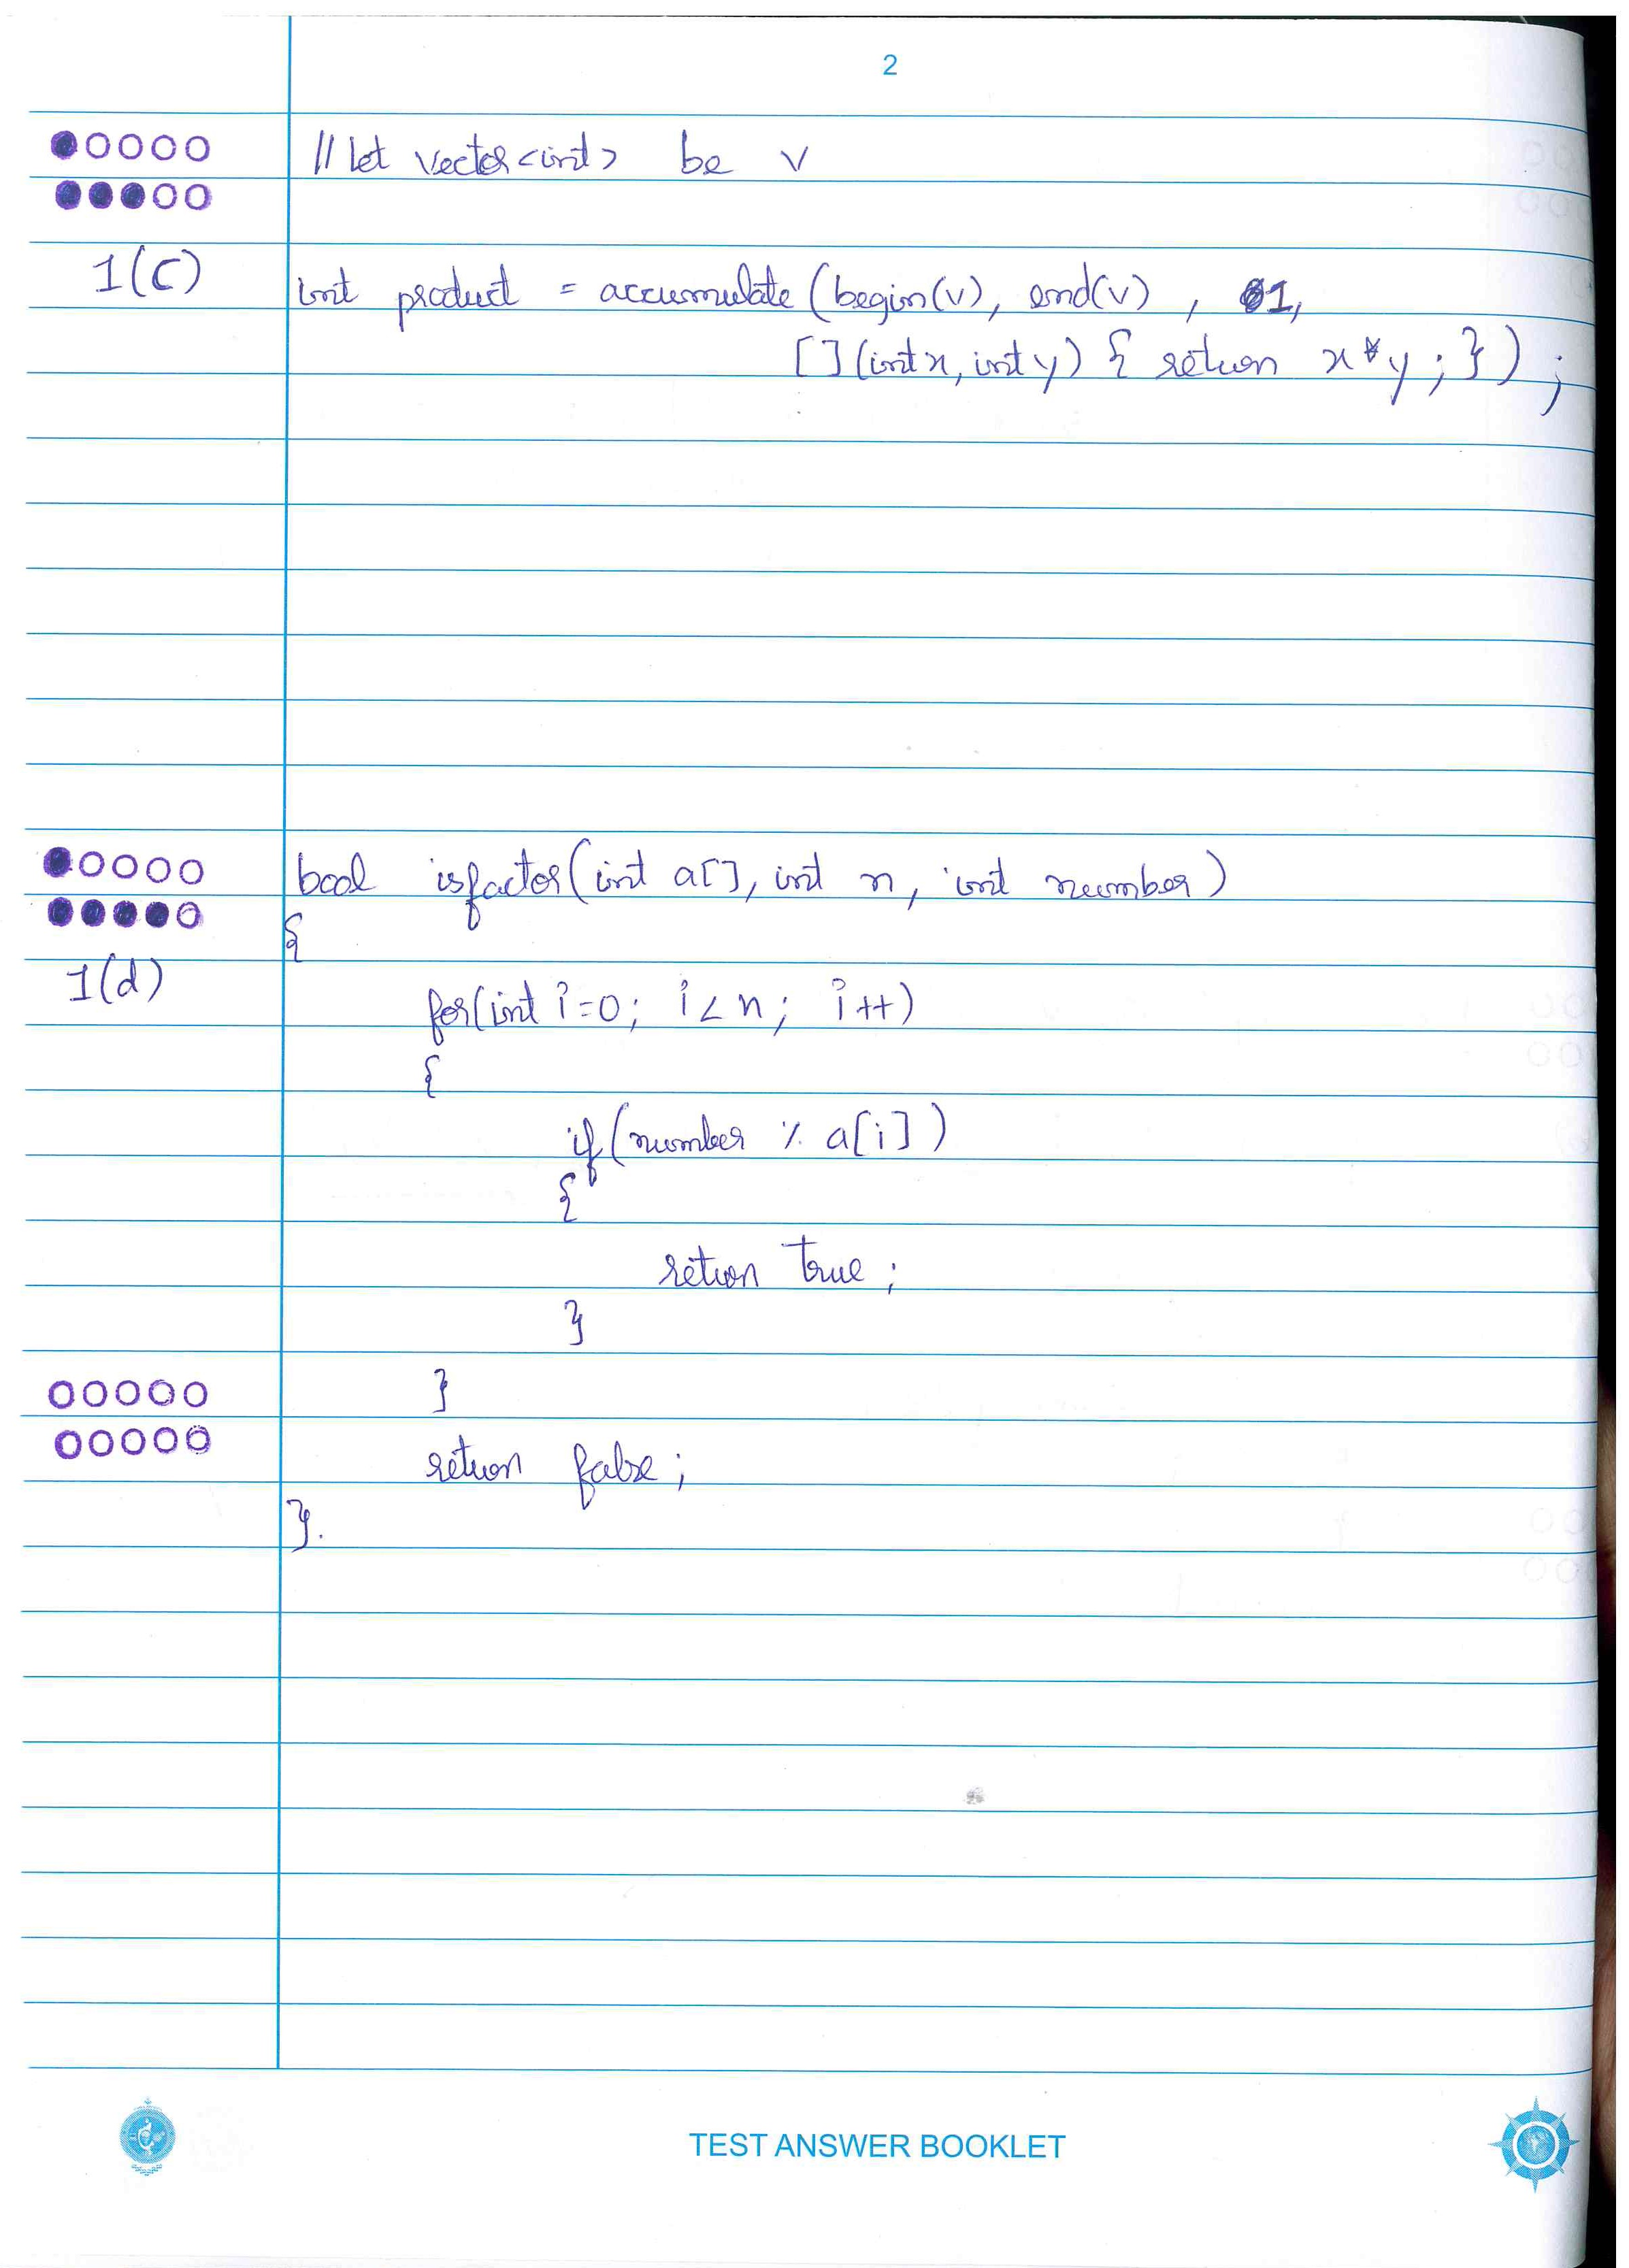 2
// let vector<int> be v
1(c)
int product = accumulate (begin(v), end(v), 1,
[](int x, int y) { return x * y ; } ) ;
bool isfactor(int a[], int n, int number)
{
1(d)
for(int i=0; i<n; i++)
{
if(number % a[i])
{
return true ;
}
}
return false ;
}.
TEST ANSWER BOOKLET